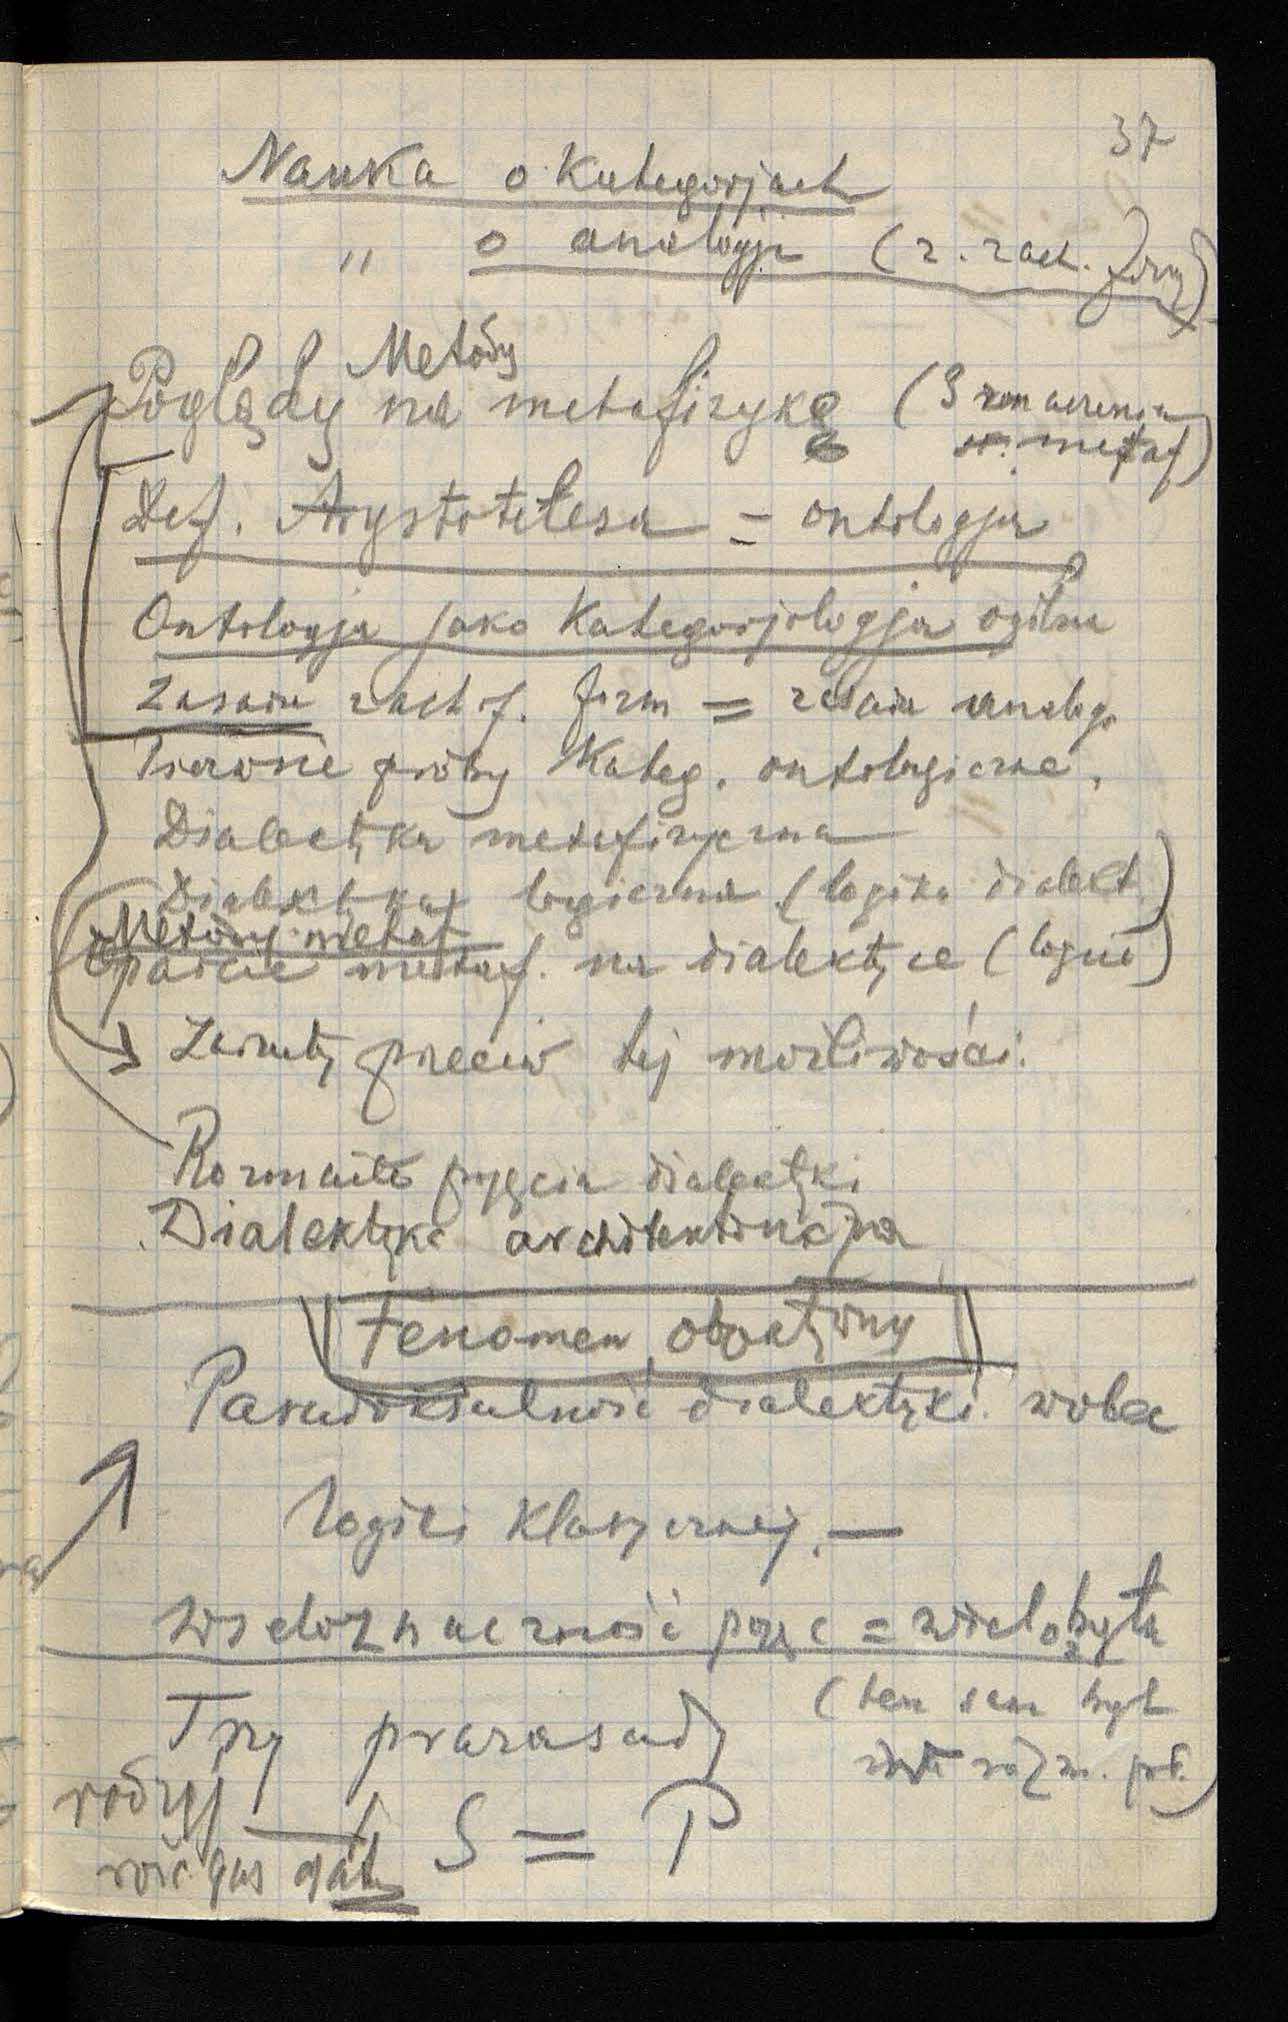 37
Nauka o Kategorjach
" o analogji (z. zach. formy)
Metody
Poglądy na metafizykę (3 znaczenia
metaf)
Def. Arystotelesa = ontologja
Ontologja jako Kategorjologja ogólna
Zasada zach. form = zasada analog.
Pierwsze próby Kateg. ontologiczne.
Dialektyka metafizyczna
Dialektyka logiczna (logika dialekt)
Metody metaf
Oparcie metaf. na dialektyce (logice)
Zarzuty przeciw tej możliwości:
Rozmaite pojęcia dialektyki
Dialektyka architektoniczna
Fenomen obiektywny
Paradoksalność dialektyki wobec
logiki klasycznej. —
Wieloznaczność pojęć = wielobyta
(ten sam byt
Trzy prazasady
rodzaj
S = P